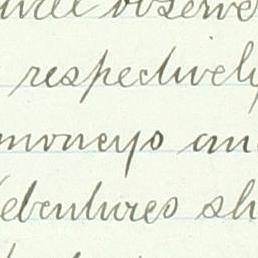 will observe
respectively
moneys an
debentures sh